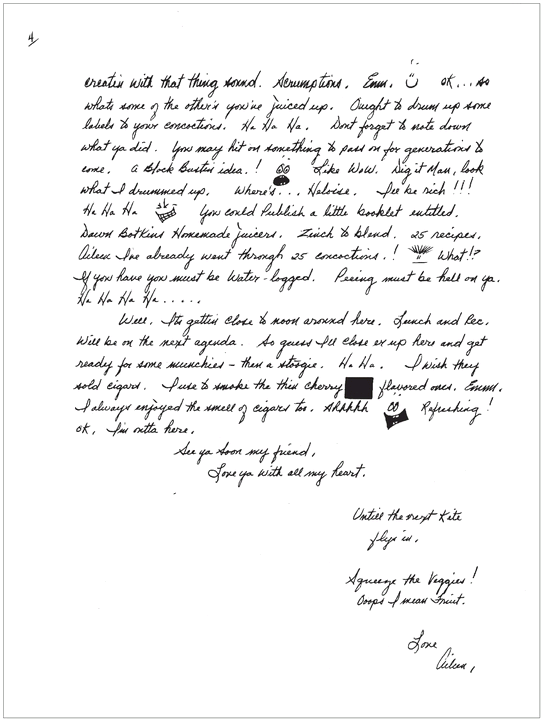 4
creatin with that thing sound. Scrumptious. Emm. OK... so
whats some of the other's you've juiced up. Ought to drum up some
labels to your concoctions. Ha Ha Ha. Dont forget to note down
what ya did. You may hit on something to pass on for generations to
come. A Block Buster idea.! Like Wow. Dig it Man, look
what I drummed up. Where's... Heloise. I'll be rich!!!
Ha Ha Ha You could Publish a little booklet entitled.
Dawn Botkins Homemade juicers. Zinch to blend. 25 recipes.
Aileen I've already went through 25 concoctions.! What!?
If you have you must be Water-logged. Peeing must be hell on ya.
Ha Ha Ha Ha.....
Well. Its gettin close to noon around here. Lunch and Rec.
Will be on the next agenda. So guess I'll close er up here and get
ready for some munchies - then a stogie. Ha Ha. I wish they
sold cigars. I use to smoke the thin cherry flavored ones. Emmm.
I always enjoyed the smell of cigars too. Ahhhhh Refreshing!
OK, I'm outta here.
See ya Soon my friend,
Love ya With all my heart.
Untill the next Kite
flys in.
Squeeze the Veggies!
Ooops I mean Fruit.
Love
Aileen,